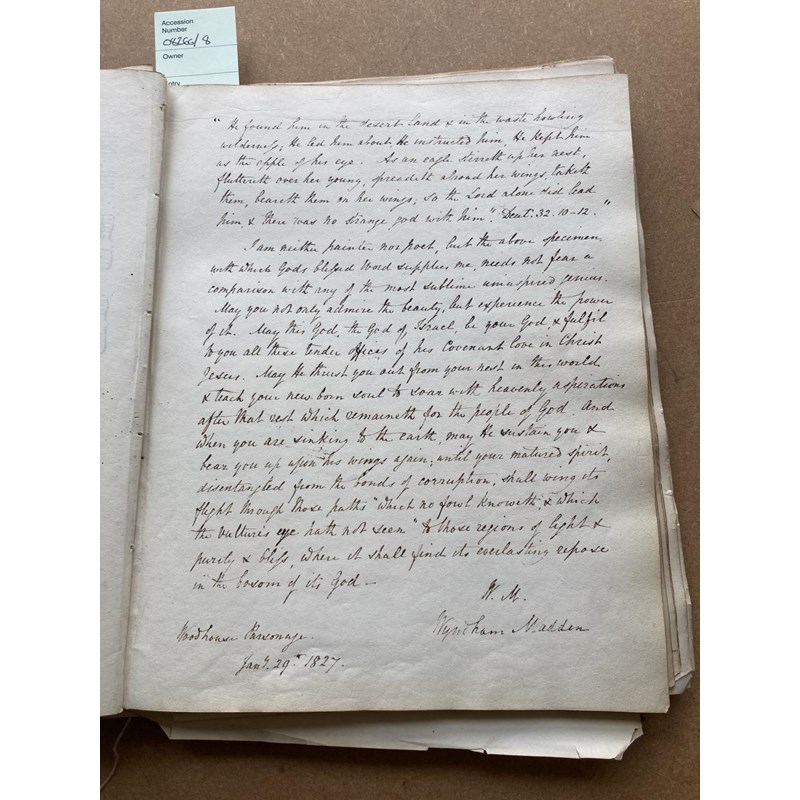 Accession
Number
08266/8
Owner
Entry
"He found him in the desert land & in the waste howling
wilderness; He led him about, He instructed him, He kept him
as the apple of his eye. As an eagle stirreth up her nest,
fluttereth over her young, spreadeth abroad her wings, taketh
them, beareth them on her wings, so the Lord alone did lead
him & there was no strange god with him" Deut: 32. 10-12."
I am neither painter nor poet, but the above specimen
with which Gods blessed Word supplies me, needs not fear a
comparison with any of the most sublime uninspired genius.
May you not only admire the beauty, but experience the power
of it. May this God, the God of Israel, be your God, & fulfil
to you all these tender offices of his Covenant love in Christ
Jesus. May He thrust you out from your nest in this world
& teach your new born soul to soar with heavenly aspirations
after that rest which remaineth for the people of God. And
when you are sinking to the earth, may He sustain you &
bear you up upon his wings again; until your matured spirit,
disentangled from the bonds of corruption, shall wing its
flight through those paths "which no fowl knoweth & which
the vulture's eye hath not seen" to those regions of light &
purity & bliss, where it shall find its everlasting repose
in the bosom of its God—
W. M.
Wyndham Madden
Woodhouse Parsonage.
Jany. 29th 1827.